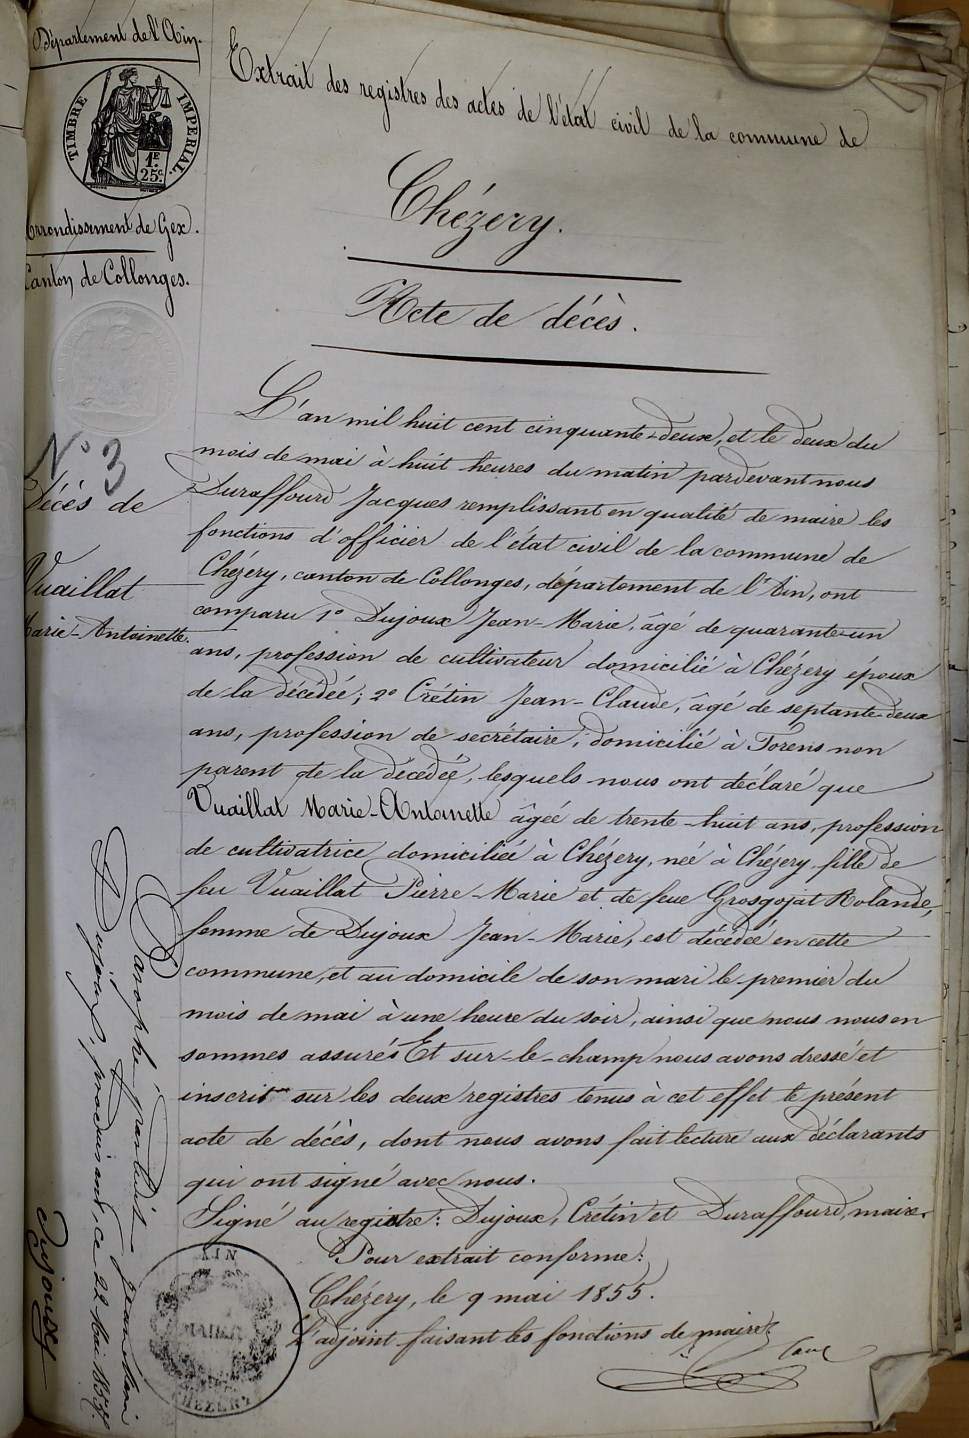 Département de l'Ain.
TIMBRE IMPERIAL.
1F.
25c.
Arrondissement de Gex.
Canton de Collonges.
Extrait des registres des actes de l'état civil de la commune de
Chézery.
Acte de décès.
N° 3
Décés de
Vuaillat
Marie-Antoinette.
L'an mil huit cent cinquante-deux, et le deux du
mois de mai à huit heures du matin pardevant nous
Duraffourd Jacques remplissant en qualité de maire les
fonctions d'officier de l'état civil de la commune de
Chézery, canton de Collonges, département de l'Ain, ont
comparu 1° Dujoux Jean-Marie, âgé de quarante-un
ans, profession de cultivateur domicilié à Chézery époux
de la décédée; 2° Crétin Jean-Claude, âgé de septante-deux
ans, profession de secrétaire, domicilié à Forens non
parent de la décédée, lesquels nous ont déclaré que
Vuaillat Marie-Antoinette âgée de trente-huit ans, profession
de cultivatrice domiciliée à Chézery, née à Chézery fille de
feu Vuaillat Pierre-Marie et de feue Grosgojat Rolande,
femme de Dujoux Jean-Marie, est décédée en cette
commune, et au domicile de son mari le premier du
mois de mai à une heure du soir, ainsi que nous nous en
sommes assurés Et sur-le-champ nous avons dressé et
inscrit sur les deux registres tenus à cet effet le présent
acte de décès, dont nous avons fait lecture aux déclarants
qui ont signé avec nous.
Signé au registre: Dujoux, Crétin et Duraffourd, maire.
Pour extrait conforme:
Chézery, le 9 mai 1855.
L'adjoint faisant les fonctions de maire
AIN
MAIRIE
CHEZERY
Paraphé
Dujoux, produisant, ce 22 Mai 1855.
Dujoux